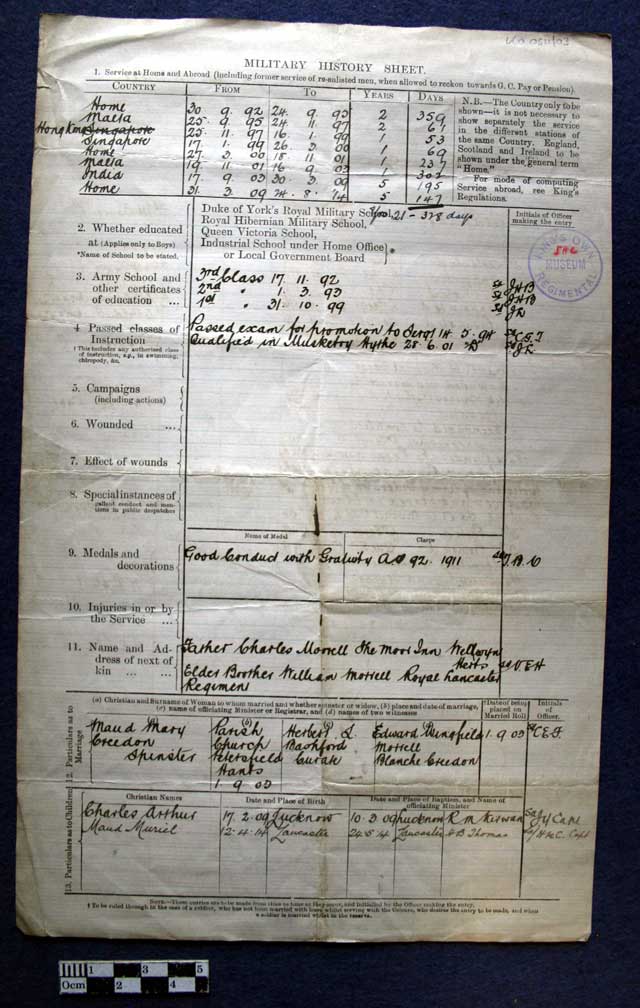 KO 0511/03
MILITARY HISTORY SHEET.
1. Service at Home and Abroad (including former service of re-enlisted men, when allowed to reckon towards G. C. Pay or Pension).
COUNTRY FROM TO YEARS DAYS
Home 30 9 92 24 9 95 2 359
Malta 25 9 95 24 11 97 2 61
Hong Kong Singapore 25 11 97 16 1 99 1 53
Singapore 17 1 99 26 3 00 1 69
Home 27 3 00 18 11 01 1 237
Malta 19 11 01 16 9 03 1 302
India 17 9 03 30 3 09 5 195
Home 31 3 09 24 8 14 5 147
N.B.—The Country only to be
shown—it is not necessary to
show separately the service
in the different stations of
the same Country. England,
Scotland and Ireland to be
shown under the general term
"Home."
For mode of computing
Service abroad, see King's
Regulations.
21 - 328 days
2. Whether educated
at (Applies only to Boys)
*Name of School to be stated.
Duke of York's Royal Military School,
Royal Hibernian Military School,
Queen Victoria School,
Industrial School under Home Office
or Local Government Board }*
Initials of Officer
making the entry.
KING'S OWN
MUSEUM
REGIMENTAL
3. Army School and
other certificates
of education ...
3rd Class 17. 11. 92
2nd " 1. 3. 93
1st " 31. 10. 99
4 Passed classes of
Instruction
† This includes any authorised class
of instruction, e.g., in swimming,
chiropody, &c.
Passed exam for promotion to Sergt 14. 5. 94
Qualified in Musketry Hythe 28. 6. 01
5. Campaigns
(including actions)
6. Wounded ...
7. Effect of wounds
8. Special instances of
gallant conduct and men-
tions in public despatches
Name of Medal Clasps
9. Medals and
decorations
Good Conduct with Gratuity AO 92. 1911
10. Injuries in or by
the Service ...
11. Name and Ad-
dress of next of
kin ... ...
Father Charles Morrell The Moor Inn Wellwyn
Herts
Elder Brother William Morrell Royal Lancaster
Regiment
12. Particulars as to
Marriage
(a) Christian and Surname of Woman to whom married and whether spinster or widow, (b) place and date of marriage,
(c) name of officiating Minister or Registrar, and (d) names of two witnesses
*Date of being
placed on
Married Roll
Initials
of
Officer.
Maud Mary
Creedon
Spinster
Parish
Church
Petersfield
Hants
1. 9. 03
Herbert L.
Bashford
Curate
Edward Wingfield
Morrell
Blanche Creedon
1. 9. 03
13. Particulars as to Children
Christian Names Date and Place of Birth Date and Place of Baptism, and Name of
officiating Minister
Charles Arthur 17. 2. 09 Lucknow 10. 3. 09 Lucknow R. M. Kirwan
Maud Muriel 12. 4. 14 Lancaster 24. 5. 14 Lancaster H B Thomas
NOTE.—These entries are to be made from time to time as they occur, and initialled by the Officer making the entry.
0cm 1 2 3 4 5